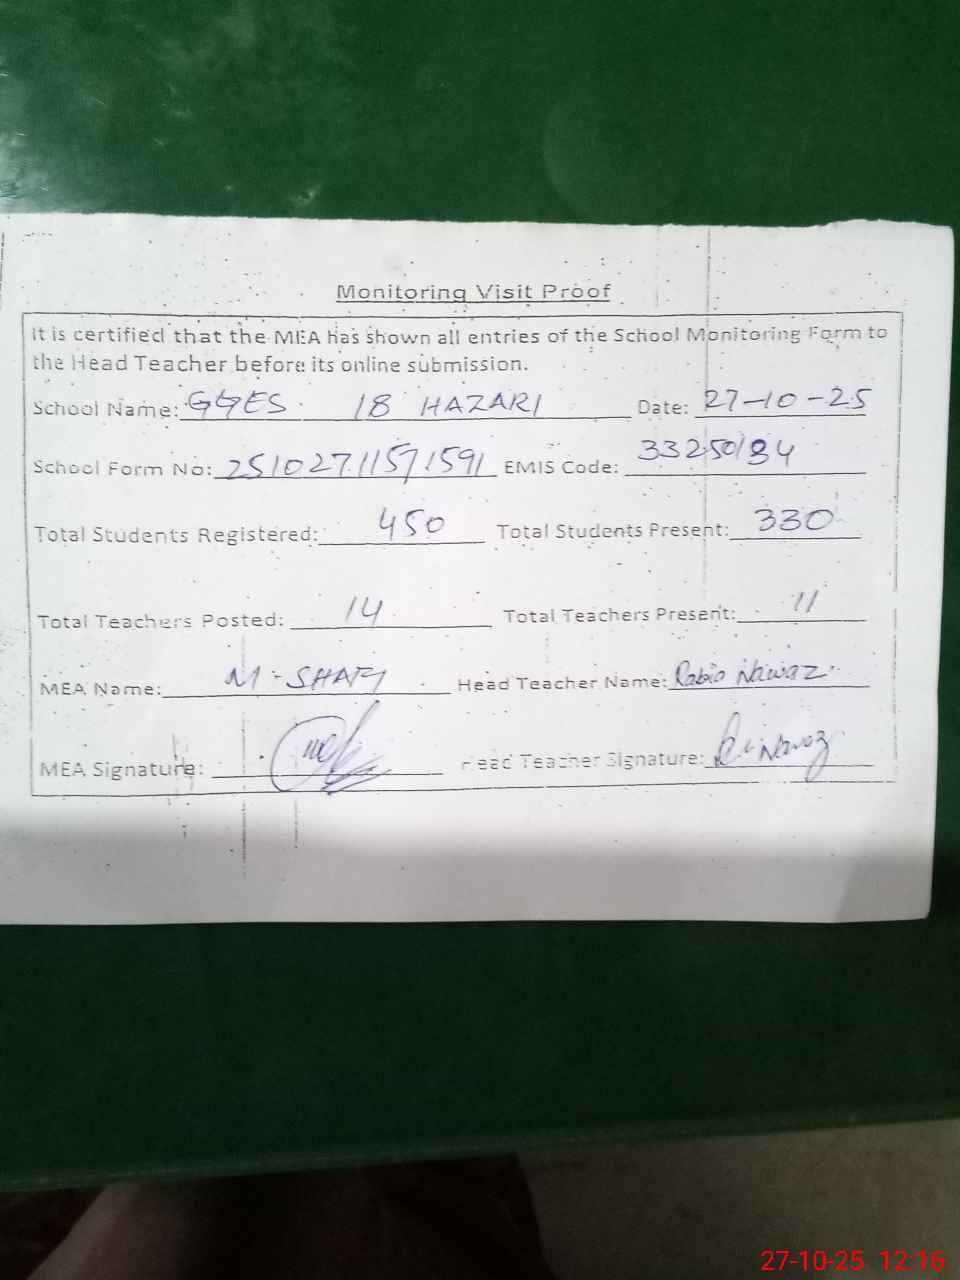 Monitoring Visit Proof
It is certified that the MEA has shown all entries of the School Monitoring Form to
the Head Teacher before its online submission.
School Name: GGES 18 HAZARI Date: 27-10-25
School Form No: 25102711571591 EMIS Code: 33250184
Total Students Registered: 450 Total Students Present: 330
Total Teachers Posted: 14 Total Teachers Present: 11
MEA Name: M-SHAFI Head Teacher Name: Rabia Nawaz
MEA Signature: Head Teacher Signature: R. Nawaz
27-10-25 12:16